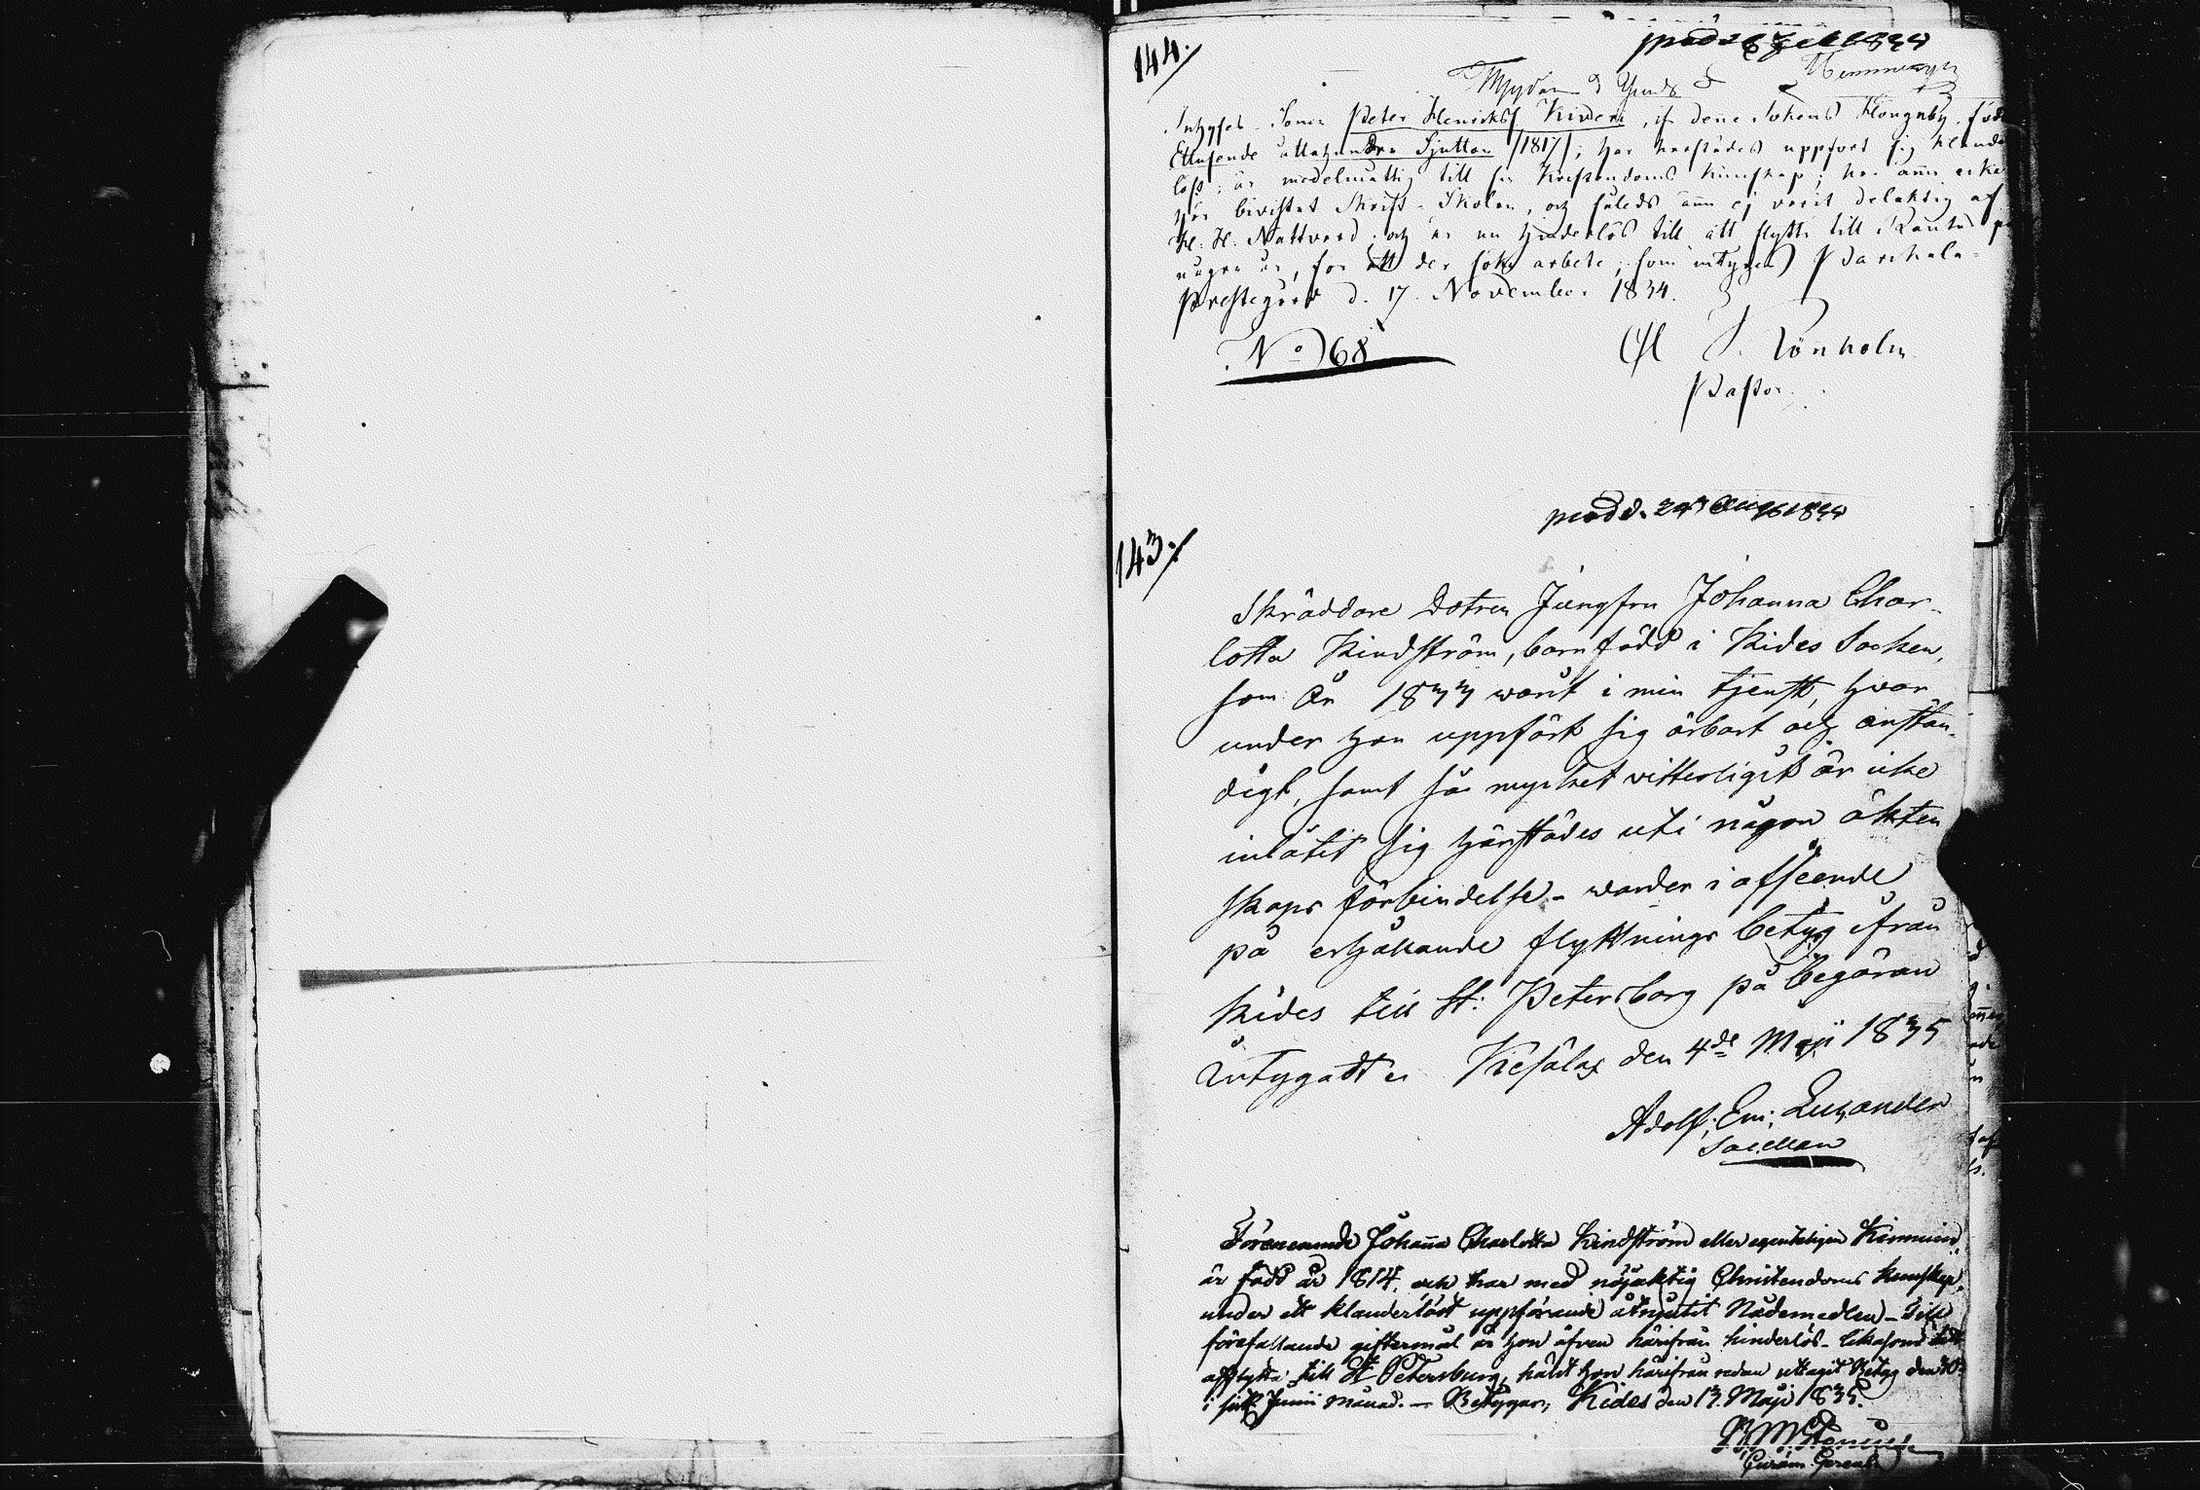 144./
Inhyses Sonen Peter Henriksf Kinders, if dene Sokens Klongnby, föd
Ettusende åttahundra Sjutton /1817/; har härstädes uppfört sig klander
löst; är medelmåttig till sin Kristendoms kunskap; har ännu icke
här bivistat Skrift-Skolan, och således ännu ej varit delaktig af
H. H. Nattvard; och är nu hinderlös till att flytta till
några år, för att der söka arbete; som intygas) Parikala
Prestegård d. 17 November 1834.
No 68
Lönholm
Pastor
143./
Skräddare Dotren Jungfru Johanna Char-
lotta Kindström, barnfödd i Kides Socken,
som År 1833 warit i min tjenst, hvar-
under hon uppfört sig ärbart och anstän-
digt, samt så mycket vitterligit är icke
inlåtit sig härstädes uti någon äkten
skaps förbindelse - warder i afseende
på erhållande flyttnings betyg ifrån
Kides till St: Petersborg på begäran
Intygadt Kesälax den 4de Maji 1835
Adolf: Em:
Förenemnde Johanna Charlotta Kindström eller egenteligen Kinnunin
är född år 1814, och har med nöjaktig Christendoms kunskap,
under ett klanderlöst uppförande åtnjutit Nådemedlen - Till
förefallande giftermål är hon äfven härifrån hinderlös - likasom att
afflytta till St Petersburg, hälst hon härifrån redan uttagit Betyg den 10
i sistl. Junii månad. - Betygar, Kides den 13 Maji 1835.